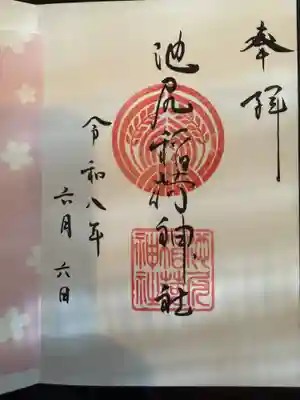 奉拝
池尻稲荷神社
令和八年
六月六日
池尻
稲荷
神社